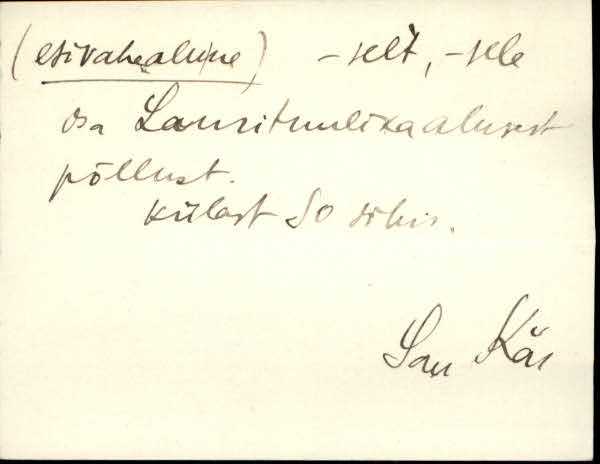 (esivahealune) -selt, -sele
osa Laurituulikaalusest
põllust.
külast SO sihis.
Kär